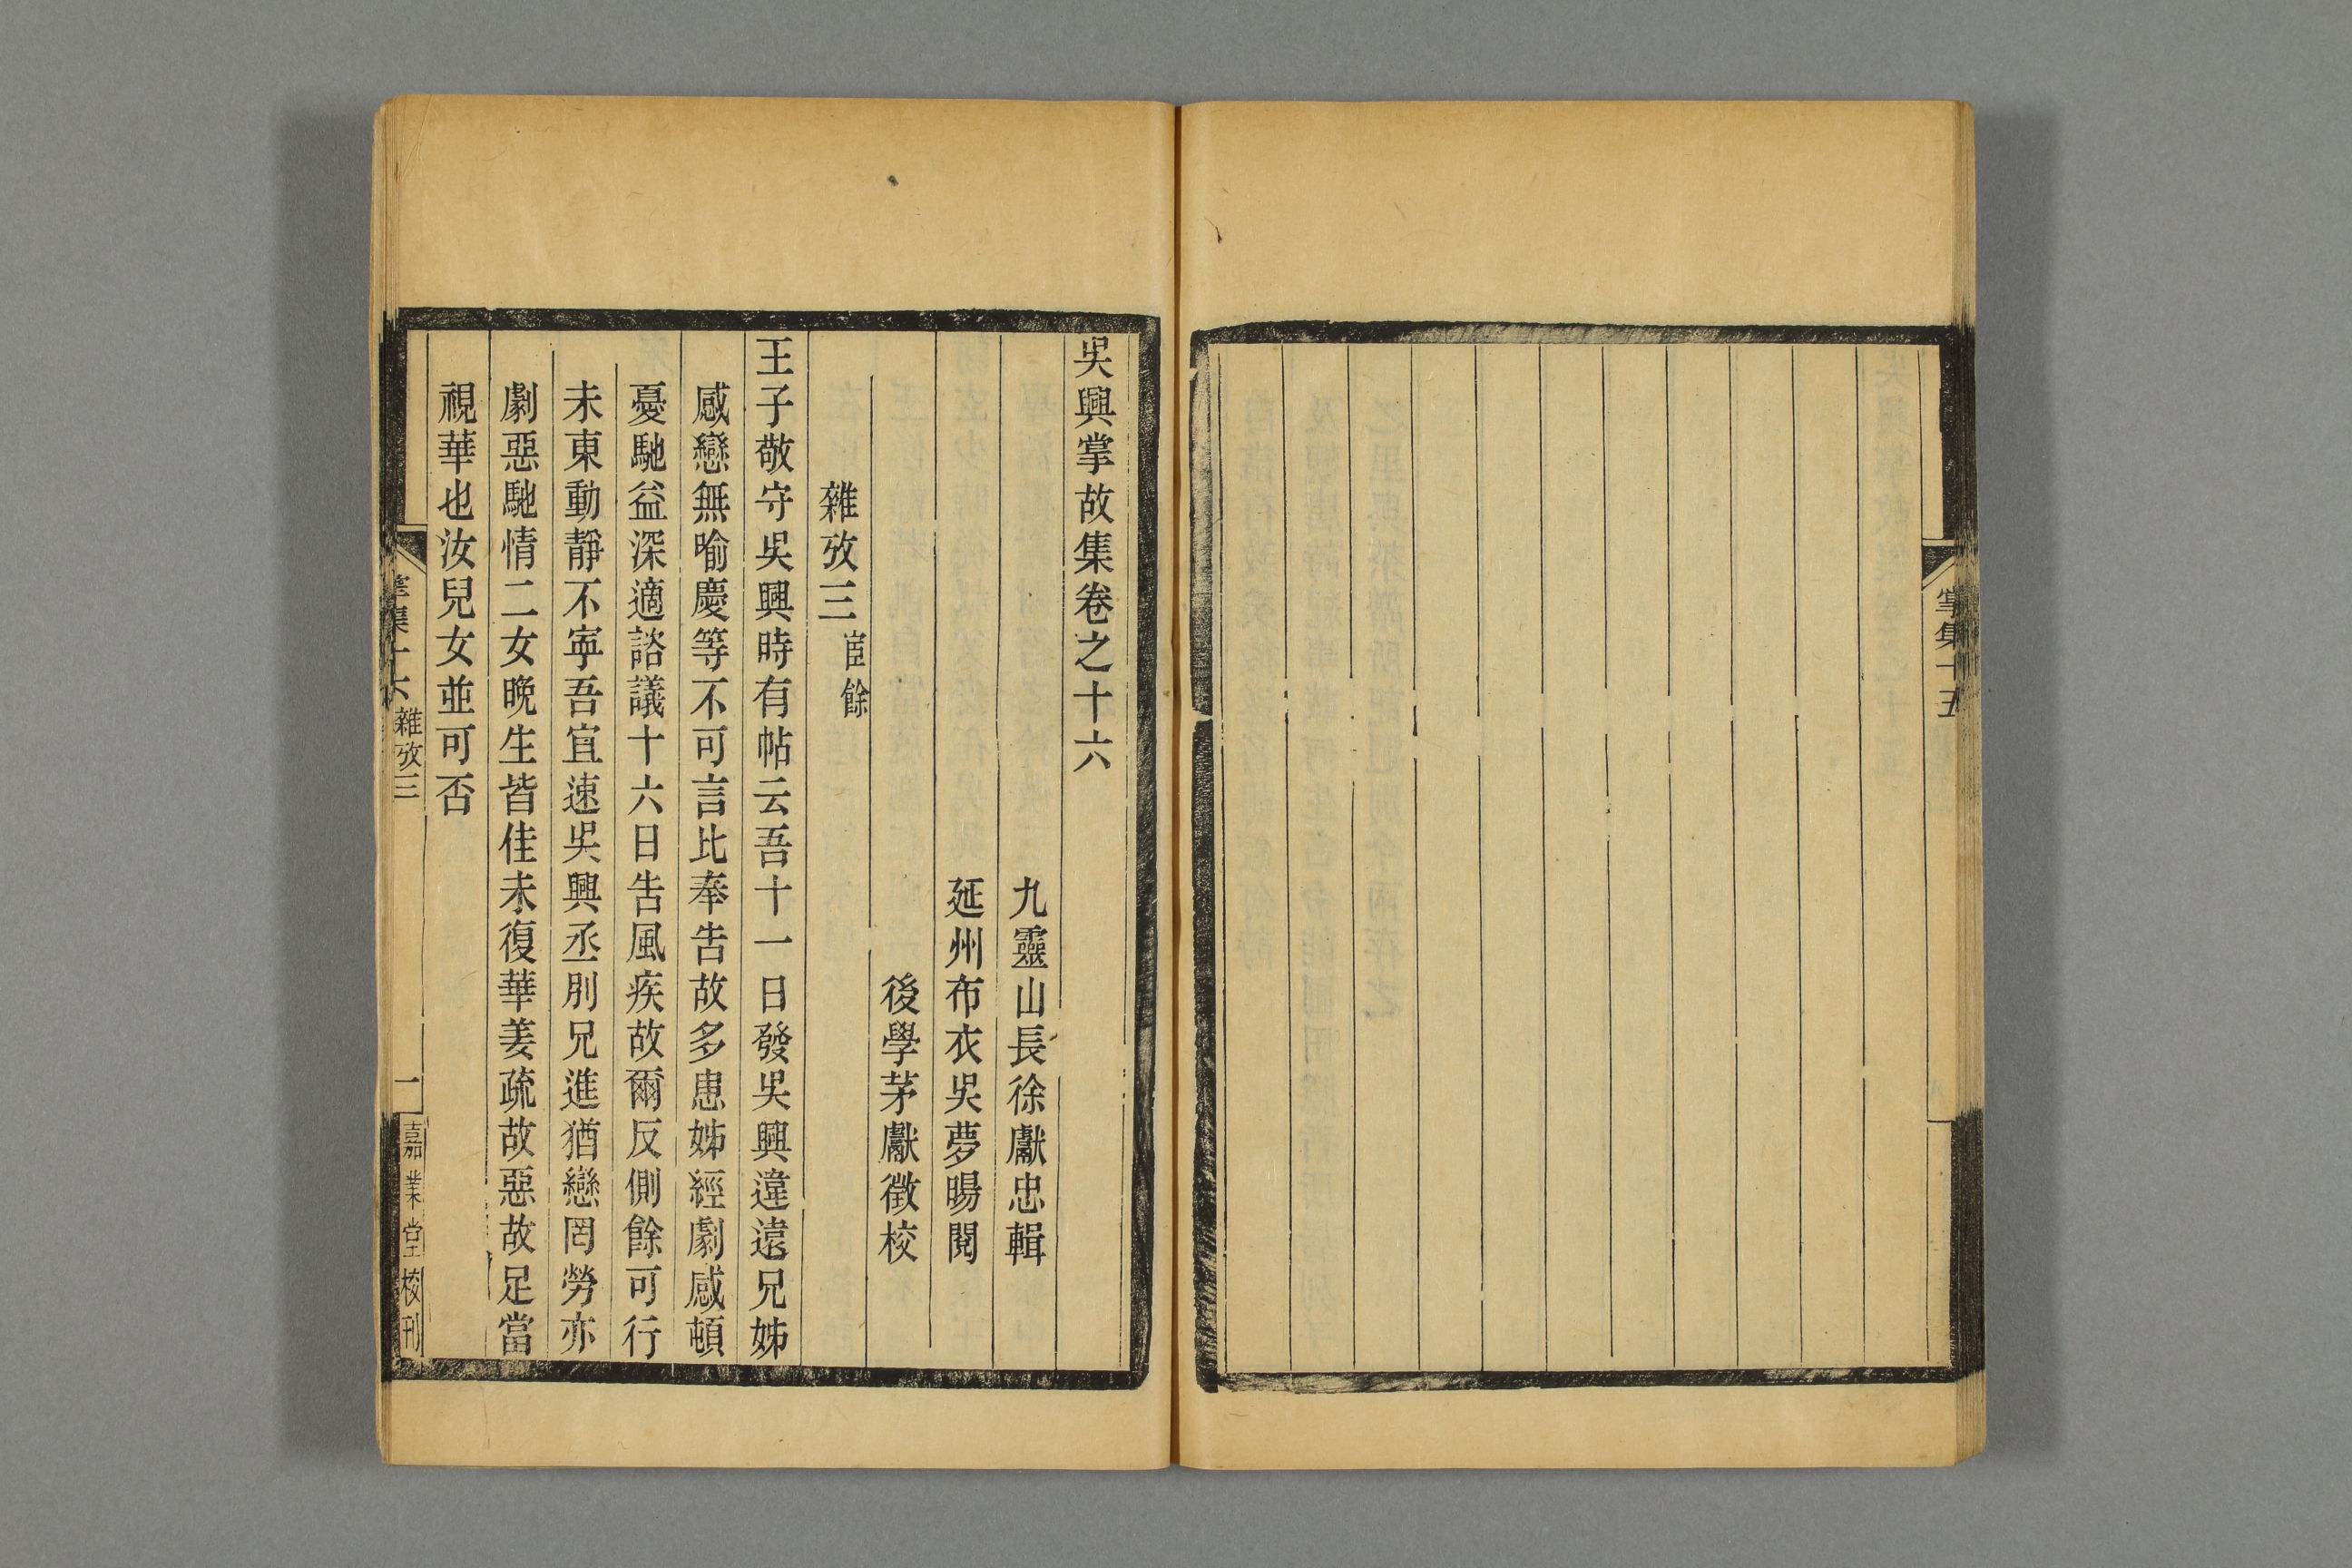 掌集十五
吳興掌故集卷之十六
九靈山長徐獻忠輯
延州布衣吳夢暘閱
後學茅獻徵校
雜攷三宦餘
王子敬守吳興時有帖云吾十一日發吳興違遠兄姊
感戀無喻慶等不可言比奉告故多患姊經劇感頓
憂馳益深適諮議十六日告風疾故爾反側餘可行
未東動靜不寧吾宜速吳興丞別兄進猶戀罔勞亦
劇惡馳情二女晚生皆佳未復華姜疏故惡故足當
視華也汝兒女並可否
掌集十六
雜攷三
一
嘉業堂校刊